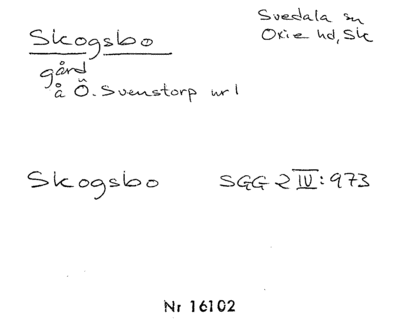 Skogsbo
Svedala sn
Oxie hd, Sk
gård
å Ö. Svenstorp nr 1
Skogsbo
SGG 2 IV: 973
Nr 16102